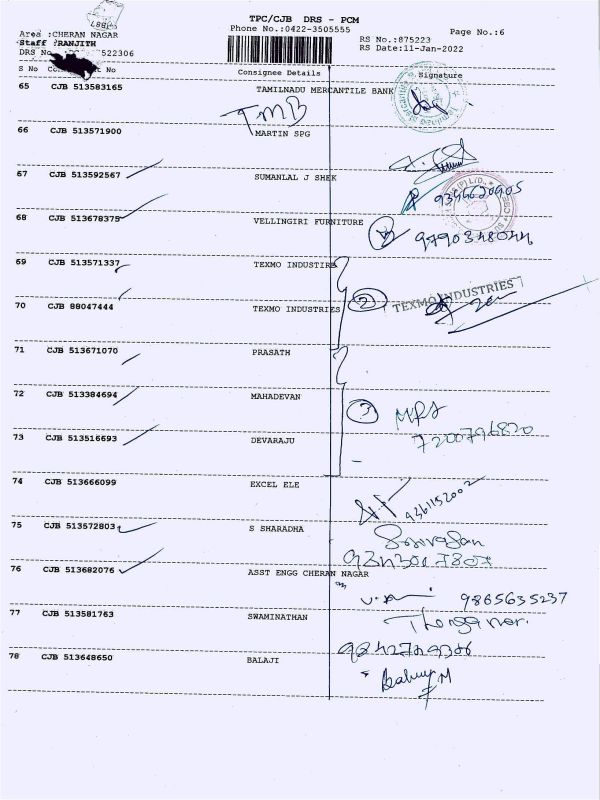 TPC/CJB DRS - PCM
Phone No.:0422-3505555
Page No.:6
Area :CHERAN NAGAR
Staff :RANJITH
RS No.:875223
RS Date:11-Jan-2022
DRS No 522306
S No No Consignee Details Signature
65 CJB 513583165 TAMILNADU MERCANTILE BANK
TMB
66 CJB 513571900 MARTIN SPG
67 CJB 513592567 SUMANLAL J SHEK
68 CJB 513678375 VELLINGIRI FURNITURE
9790348044
69 CJB 513571337 TEXMO INDUSTIRE
70 CJB 88047444 TEXMO INDUSTRIES 2 TEXMO INDUSTRIES
71 CJB 513671070 PRASATH
72 CJB 513384694 MAHADEVAN
3
7200796820
73 CJB 513516693 DEVARAJU
74 CJB 513666099 EXCEL ELE
9361152002
75 CJB 513572803 S SHARADHA
Srinivasan
76 CJB 513682076 ASST ENGG CHERAN NAGAR
9865635237
77 CJB 513581763 SWAMINATHAN
78 CJB 513648650 BALAJI